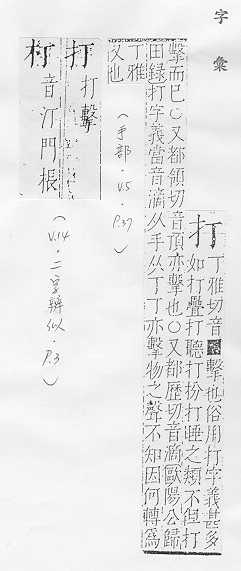 字彙
打 丁雅切音擊也俗用打字義甚多
如打疊打聽打扮打睡之類不但打
擊而已○又都領切音頂亦擊也○又都歷切音滴歐陽公歸
田錄打字義當音滴从手从丁丁亦擊物之聲不知因何轉爲
丁雅
反也
(手部.v.5.P.37)
打 打擊
朾 音汀門棖
(v.14.二字辨似.P.3)